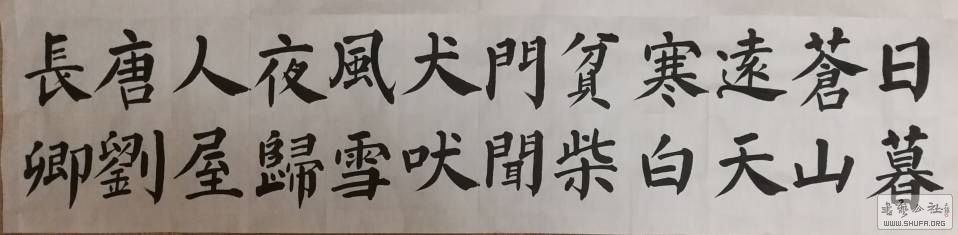 日暮
蒼山
遠天
寒白
貧柴
門聞
犬吠
風雪
夜歸
人屋
唐劉
長卿
WWW.SHUFA.ORG